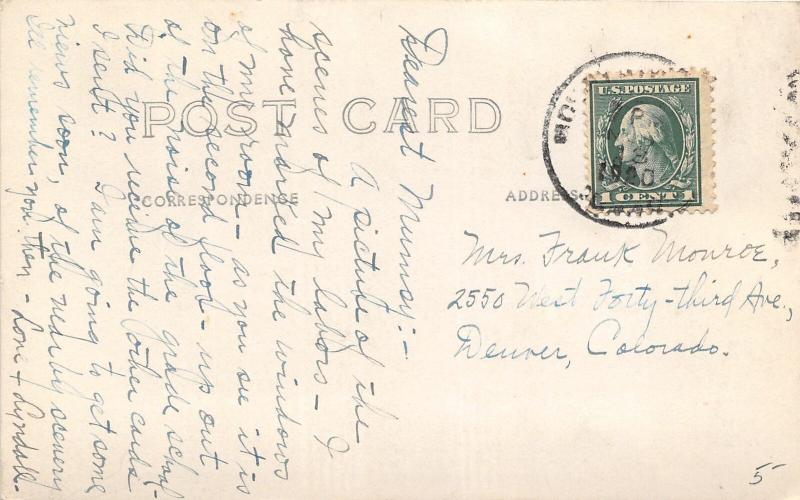 POST CARD
CORRESPONDENCE
ADDRESS
U.S. POSTAGE
1 CENT 1
1920
Dearest Mumsy:-
A picture of the
scenes of my labors - I
have marked the windows
of my room - as you see it is
on the second floor - up out
of the noise of the grade school.
Did you receive the other cards
I sent? I am going to get some
views soon, of the near by scenery
I'll remember you then - Love + Lyndall.
Mrs. Frank Monroe,
2550 West Forty-third Ave.,
Denver, Colorado.
5